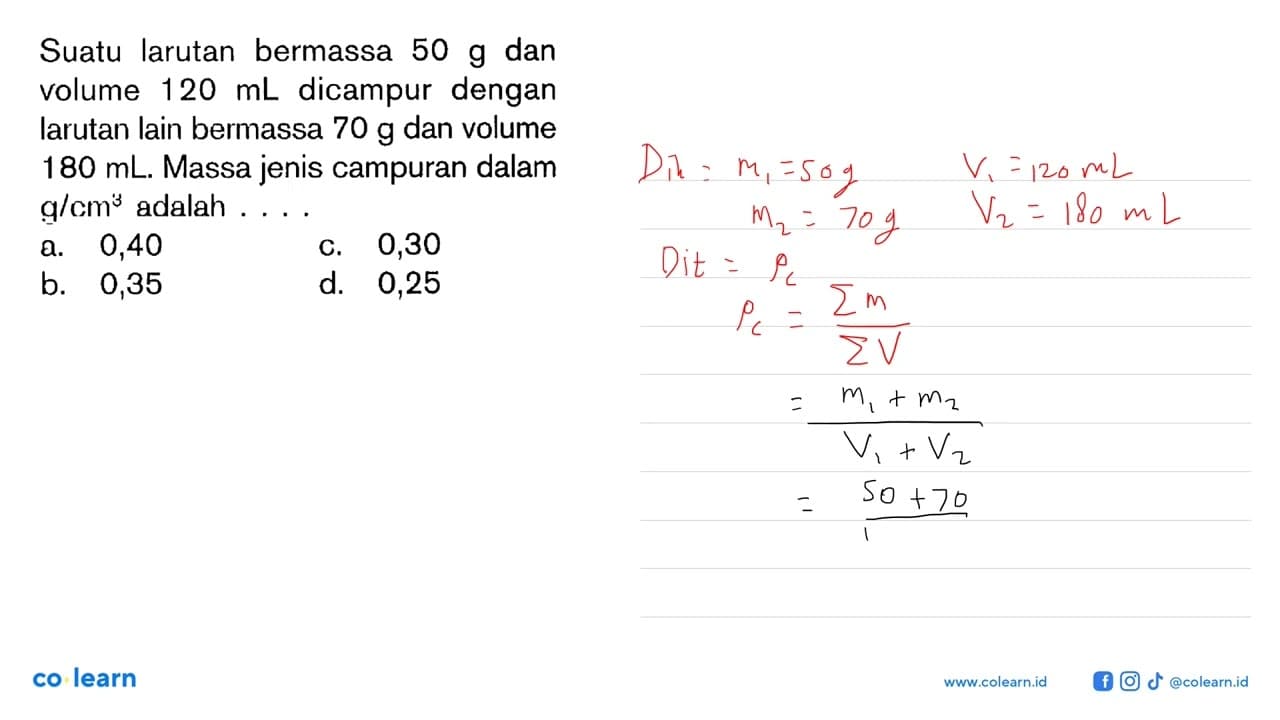 Suatu larutan bermassa 50 g dan
volume 120 mL dicampur dengan
larutan lain bermassa 70 g dan volume
180 mL. Massa jenis campuran dalam
g/cm³ adalah . . . .
a. 0,40 c. 0,30
b. 0,35 d. 0,25
Dik : m₁ = 50 g V₁ = 120 mL
m₂ = 70 g V₂ = 180 mL
Dit = ρc
ρc = Σm
ΣV
= m₁ + m₂
V₁ + V₂
= 50 + 70
1
co learn
www.colearn.id @colearn.id